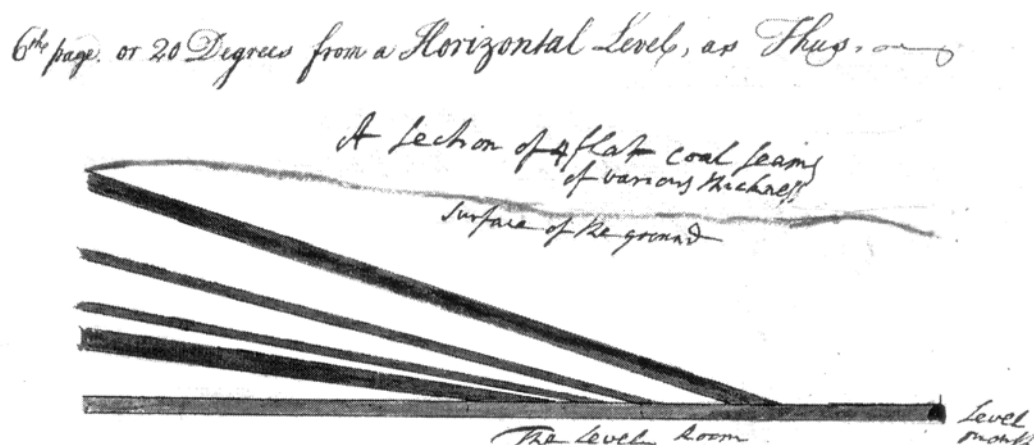 6th page. or 20 Degrees from a Horizontal Level, as Thus.
A Section of 4 flat coal seams
of various thickness
Surface of the ground
Level
The Level Room